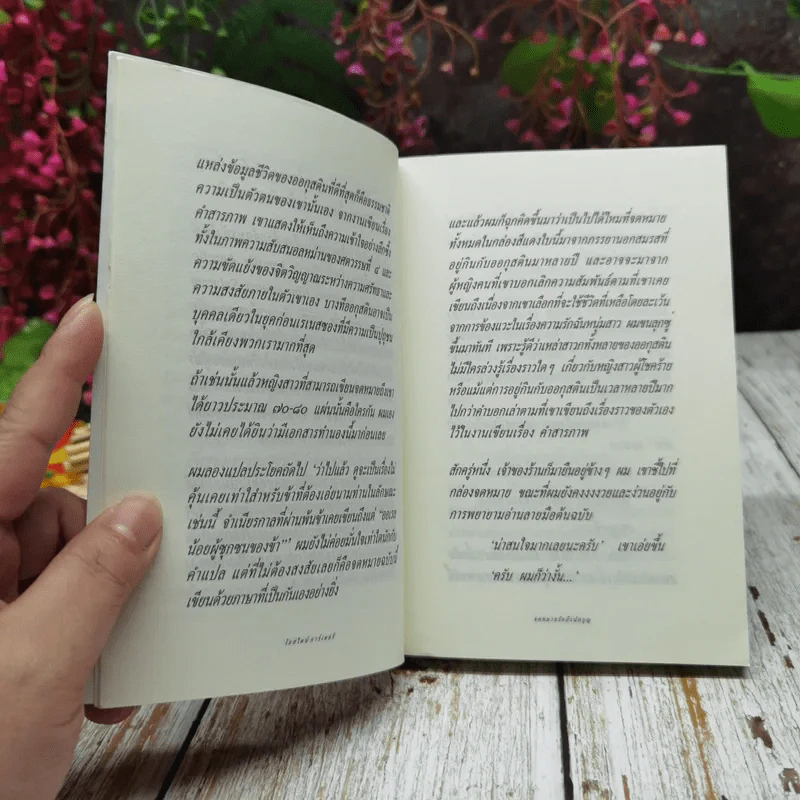 แหล่งข้อมูลชีวิตของออกุสตินที่ดีที่สุดก็คือธรรมชาติ
ความเป็นตัวตนของเขานั้นเอง จากงานเขียนเรื่อง
คำสารภาพ เขาแสดงให้เห็นถึงความเข้าใจอย่างลึกซึ้ง
ทั้งในภาพความสับสนอลหม่านของศตวรรษที่ ๔ และ
ความขัดแย้งของจิตวิญญาณระหว่างความศรัทธาและ
ความสงสัยภายในตัวเขาเอง บางทีออกุสตินอาจเป็น
บุคคลเดียวในยุคก่อนเรเนสซองที่มีความเป็นปุถุชน
ใกล้เคียงพวกเรามากที่สุด
ถ้าเช่นนั้นแล้วหญิงสาวที่สามารถเขียนจดหมายถึงเขา
ได้ยาวประมาณ ๗๐-๘๐ แผ่นนั้นคือใครกัน ผมเอง
ยังไม่เคยได้ยินว่ามีเอกสารทำนองนี้มาก่อนเลย
ผมลองแปลประโยคถัดไป ‘ว่าไปแล้ว ดูจะเป็นเรื่องไม่
คุ้นเคยเท่าใสำหรับข้าที่ต้องเอ่ยนามท่านในลักษณะ
เช่นนี้ จำเนียรกาลที่ผ่านพ้นข้าเคยเขียนถึงแต่ “ออเรล
น้อยผู้ซุกซนของข้า”’ ผมยังไม่ค่อยมั่นใจเท่าใดนักกับ
คำแปล แต่ที่ไม่ต้องสงสัยเลยก็คือจดหมายฉบับนี้
เขียนด้วยภาษาที่เป็นกันเองอย่างยิ่ง
โยสไตน์ กอร์เดอร์
และแล้วผมก็ฉุกคิดขึ้นมาว่าเป็นไปได้ไหมที่จดหมาย
ทั้งหมดในกล่องสีแดงใบนี้มาจากภรรยานอกสมรสที่
อยู่กินกับออกุสตินมาหลายปี และอาจจะมาจาก
ผู้หญิงคนที่เขาบอกเลิกความสัมพันธ์ตามที่เขาเคย
เขียนถึงเนื่องจากเขาเลือกที่จะใช้ชีวิตที่เหลือโดยละเว้น
จากการข้องแวะในเรื่องความรักฉันหนุ่มสาว ผมขนลุกซู่
ขึ้นมาทันที เพราะรู้ดีว่าเหล่าสาวกทั้งหลายของออกุสติน
ไม่มีใครล่วงรู้เรื่องราวใดๆ เกี่ยวกับหญิงสาวผู้โชคร้าย
หรือแม้แต่การอยู่กินกับออกุสตินเป็นเวลาหลายปีมาก
ไปกว่าคำบอกเล่าตามที่เขาเขียนถึงเรื่องราวของตัวเอง
ไว้ในงานเขียนเรื่อง คำสารภาพ
สักครู่หนึ่ง เจ้าของร้านก็มายืนอยู่ข้างๆ ผม เขาชี้ไปที่
กล่องจดหมาย ขณะที่ผมยังคงงงงวยและง่วนอยู่กับ
การพยายามอ่านลายมือต้นฉบับ
‘น่าสนใจมากเลยนะครับ’ เขาเอ่ยขึ้น
‘ครับ ผมก็ว่างั้น...’